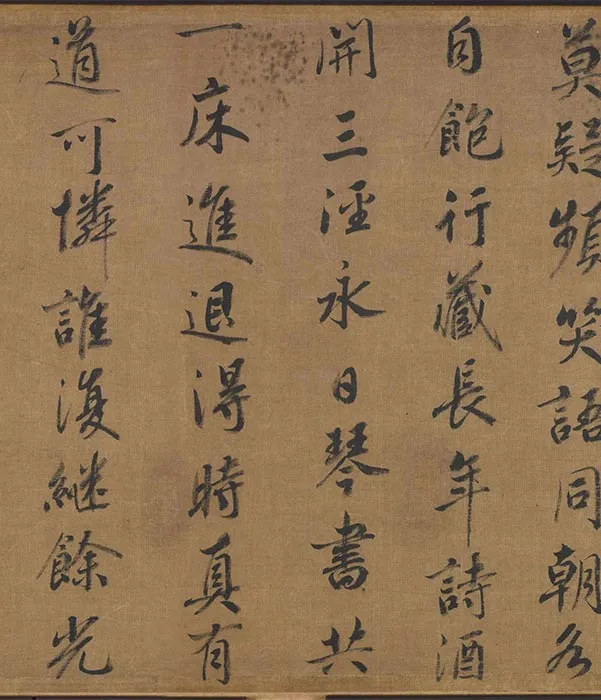 莫疑頻笑語同朝各
自飽行藏長年詩酒
開三徑永日琴書共
一床進退得時真有
道可憐誰復繼餘光